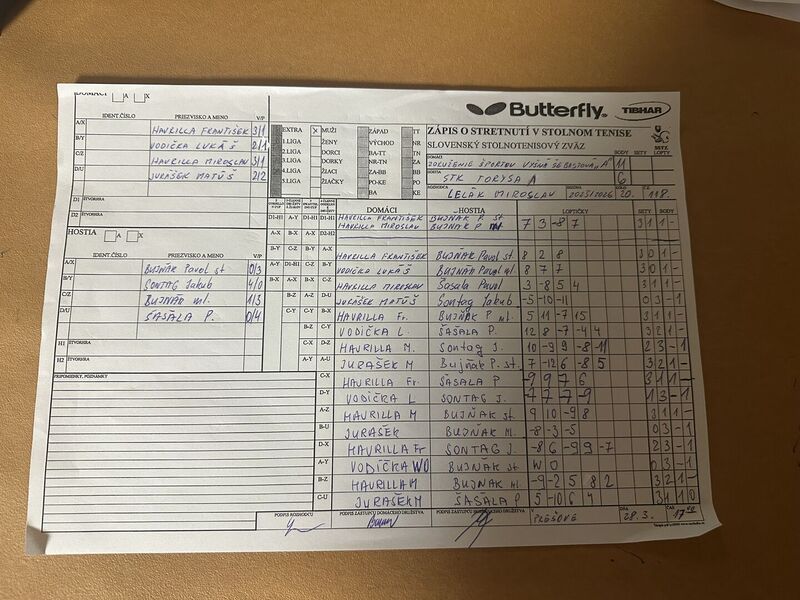 DOMÁCI A X
IDENT.ČÍSLO PRIEZVISKO A MENO V/P
A/X HAVRILLA FRANTIŠEK 3/1
B/Y VODIČKA LUKÁŠ 2/1
C/Z HAVRILLA MIROSLAV 3/1
D/U JURAŠEK MATÚŠ 2/2
D1 ŠTVORHRA
D2
HOSTIA A X
IDENT.ČÍSLO PRIEZVISKO A MENO V/P
A/X BUJŇÁK Pavol st 0/3
B/Y SONTAG Jakub 4/0
C/Z BUJŇÁK ml. 1/3
D/U ŠAŠALA P. 0/4
H1 ŠTVORHRA
H2
PRIPOMIENKY, POZNÁMKY
Butterfly TIBHAR
ZÁPIS O STRETNUTÍ V STOLNOM TENISE
SLOVENSKÝ STOLNOTENISOVÝ ZVÄZ
BODY SETY LOPTY
EXTRA X MUŽI ZÁPAD TT
1.LIGA ŽENY VÝCHOD NR
2.LIGA DORCI BA-TT TN
3.LIGA DORKY NR-TN ZA
4.LIGA ŽIACI ZA-BB BB
5.LIGA ŽIAČKY PO-KE PO
BA KE
DOMÁCI ZDRUŽENIE ŠPORTOV VYŠNÁ ŠEBASTOVÁ "A" 11
HOSTIA STK TORYSA A 6
ROZHODCA LELÁK MIROSLAV SEZÓNA 2025/2026 KOLO 20. 118.
DOMÁCI – HOSTIA LOPTIČKY SETY BODY
D1-H1 A-Y D1-H1 D1-H1 HAVRILLA FRANTIŠEK BUJŇÁK P. st 7 3 -8 7 3 1 1 -
HAVRILLA MIROSLAV BUJŇÁK P ml
HAVRILLA FRANTIŠEK BUJŇÁK Pavol st 8 2 8 3 0 1 -
VODIČKA LUKÁŠ BUJŇÁK Pavol ml. 8 7 7 3 0 1 -
HAVRILLA MIROSLAV Šašala Pavol 3 -8 5 4 3 1 1 -
JURAŠEK MATÚŠ Sontag Jakub -5 -10 -11 0 3 - 1
HAVRILLA Fr. BUJŇÁK P ml. 5 11 -7 15 3 1 1 -
VODIČKA L. ŠAŠALA P. 12 8 -7 -4 4 3 2 1 -
HAVRILLA M. Sontag J. 10 -9 9 -8 -11 2 3 - 1
JURAŠEK M Bujňák P. st. 7 -12 6 -8 5 3 2 1 -
C-X HAVRILLA Fr. ŠAŠALA P -9 9 7 6 3 1 1 -
D-Y VODIČKA L SONTAG J. -7 7 -7 -9 1 3 - 1
A-Z HAVRILLA M BUJŇÁK st. 9 10 -9 8 3 1 1 -
B-U JURAŠEK BUJŇÁK ml. -8 -3 -5 0 3 - 1
D-X HAVRILLA Fr SONTAG J. -8 6 -9 9 -7 2 3 - 1
A-Y VODIČKA WO BUJŇÁK st W O 0 3 - 1
B-Z HAVRILLA M BUJŇÁK ml -9 -2 5 8 2 3 2 1 -
C-U JURAŠEK M ŠAŠALA P 5 -10 6 4 3 1 1 0
PODPIS ROZHODCU PODPIS ZÁSTUPCU DOMÁCEHO DRUŽSTVA PODPIS ZÁSTUPCU HOSŤUJÚCEHO DRUŽSTVA V PREŠOVE DŇA 28.3. ČAS 17 00